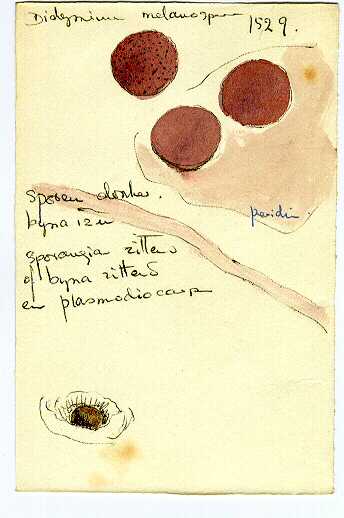 Didymium melanosper
1529.
Sporen donker.
byna 12 u
peridi.
sporangia zittend
of byna zittend
en plasmodiocarp